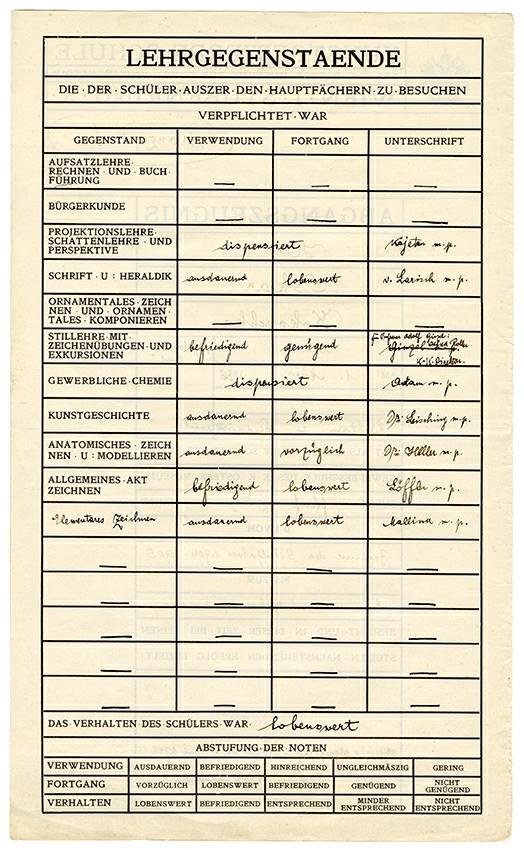 LEHRGEGENSTAENDE
DIE · DER · SCHÜLER · AUSZER · DEN · HAUPTFÄCHERN · ZU · BESUCHEN
VERPFLICHTET · WAR
GEGENSTAND VERWENDUNG FORTGANG UNTERSCHRIFT
AUFSATZLEHRE ·
RECHNEN · UND · BUCH ·
FÜHRUNG — — —
BÜRGERKUNDE — — —
PROJEKTIONSLEHRE ·
SCHATTENLEHRE · UND
PERSPEKTIVE dispensiert Kajetan m. p.
SCHRIFT · U : HERALDIK ausdauernd lobenswert v. Larisch m. p.
ORNAMENTALES · ZEICH
NEN · UND · ORNAMEN ·
TALES · KOMPONIEREN — — —
STILLEHRE · MIT ·
ZEICHENÜBUNGEN · UND
EXKURSIONEN befriedigend genügend
K. K. Direktor.
GEWERBLICHE · CHEMIE dispensiert Adam m. p.
KUNSTGESCHICHTE ausdauernd lobenswert Dr. Leisching m. p.
ANATOMISCHES · ZEICH
NEN · U : MODELLIEREN ausdauernd vorzüglich Dr. Heller m. p.
ALLGEMEINES · AKT
ZEICHNEN befriedigend lobenswert Löffler m. p.
Elementares Zeichnen ausdauernd lobenswert Mallina m. p.
— — — —
— — — —
— — — —
— — — —
— — — —
DAS · VERHALTEN · DES · SCHÜLERS · WAR · lobenswert
ABSTUFUNG · DER · NOTEN
VERWENDUNG AUSDAUERND BEFRIEDIGEND HINREICHEND UNGLEICHMÄSZIG GERING
FORTGANG VORZÜGLICH LOBENSWERT BEFRIEDIGEND GENÜGEND NICHT GENÜGEND
VERHALTEN LOBENSWERT BEFRIEDIGEND ENTSPRECHEND MINDER ENTSPRECHEND NICHT ENTSPRECHEND